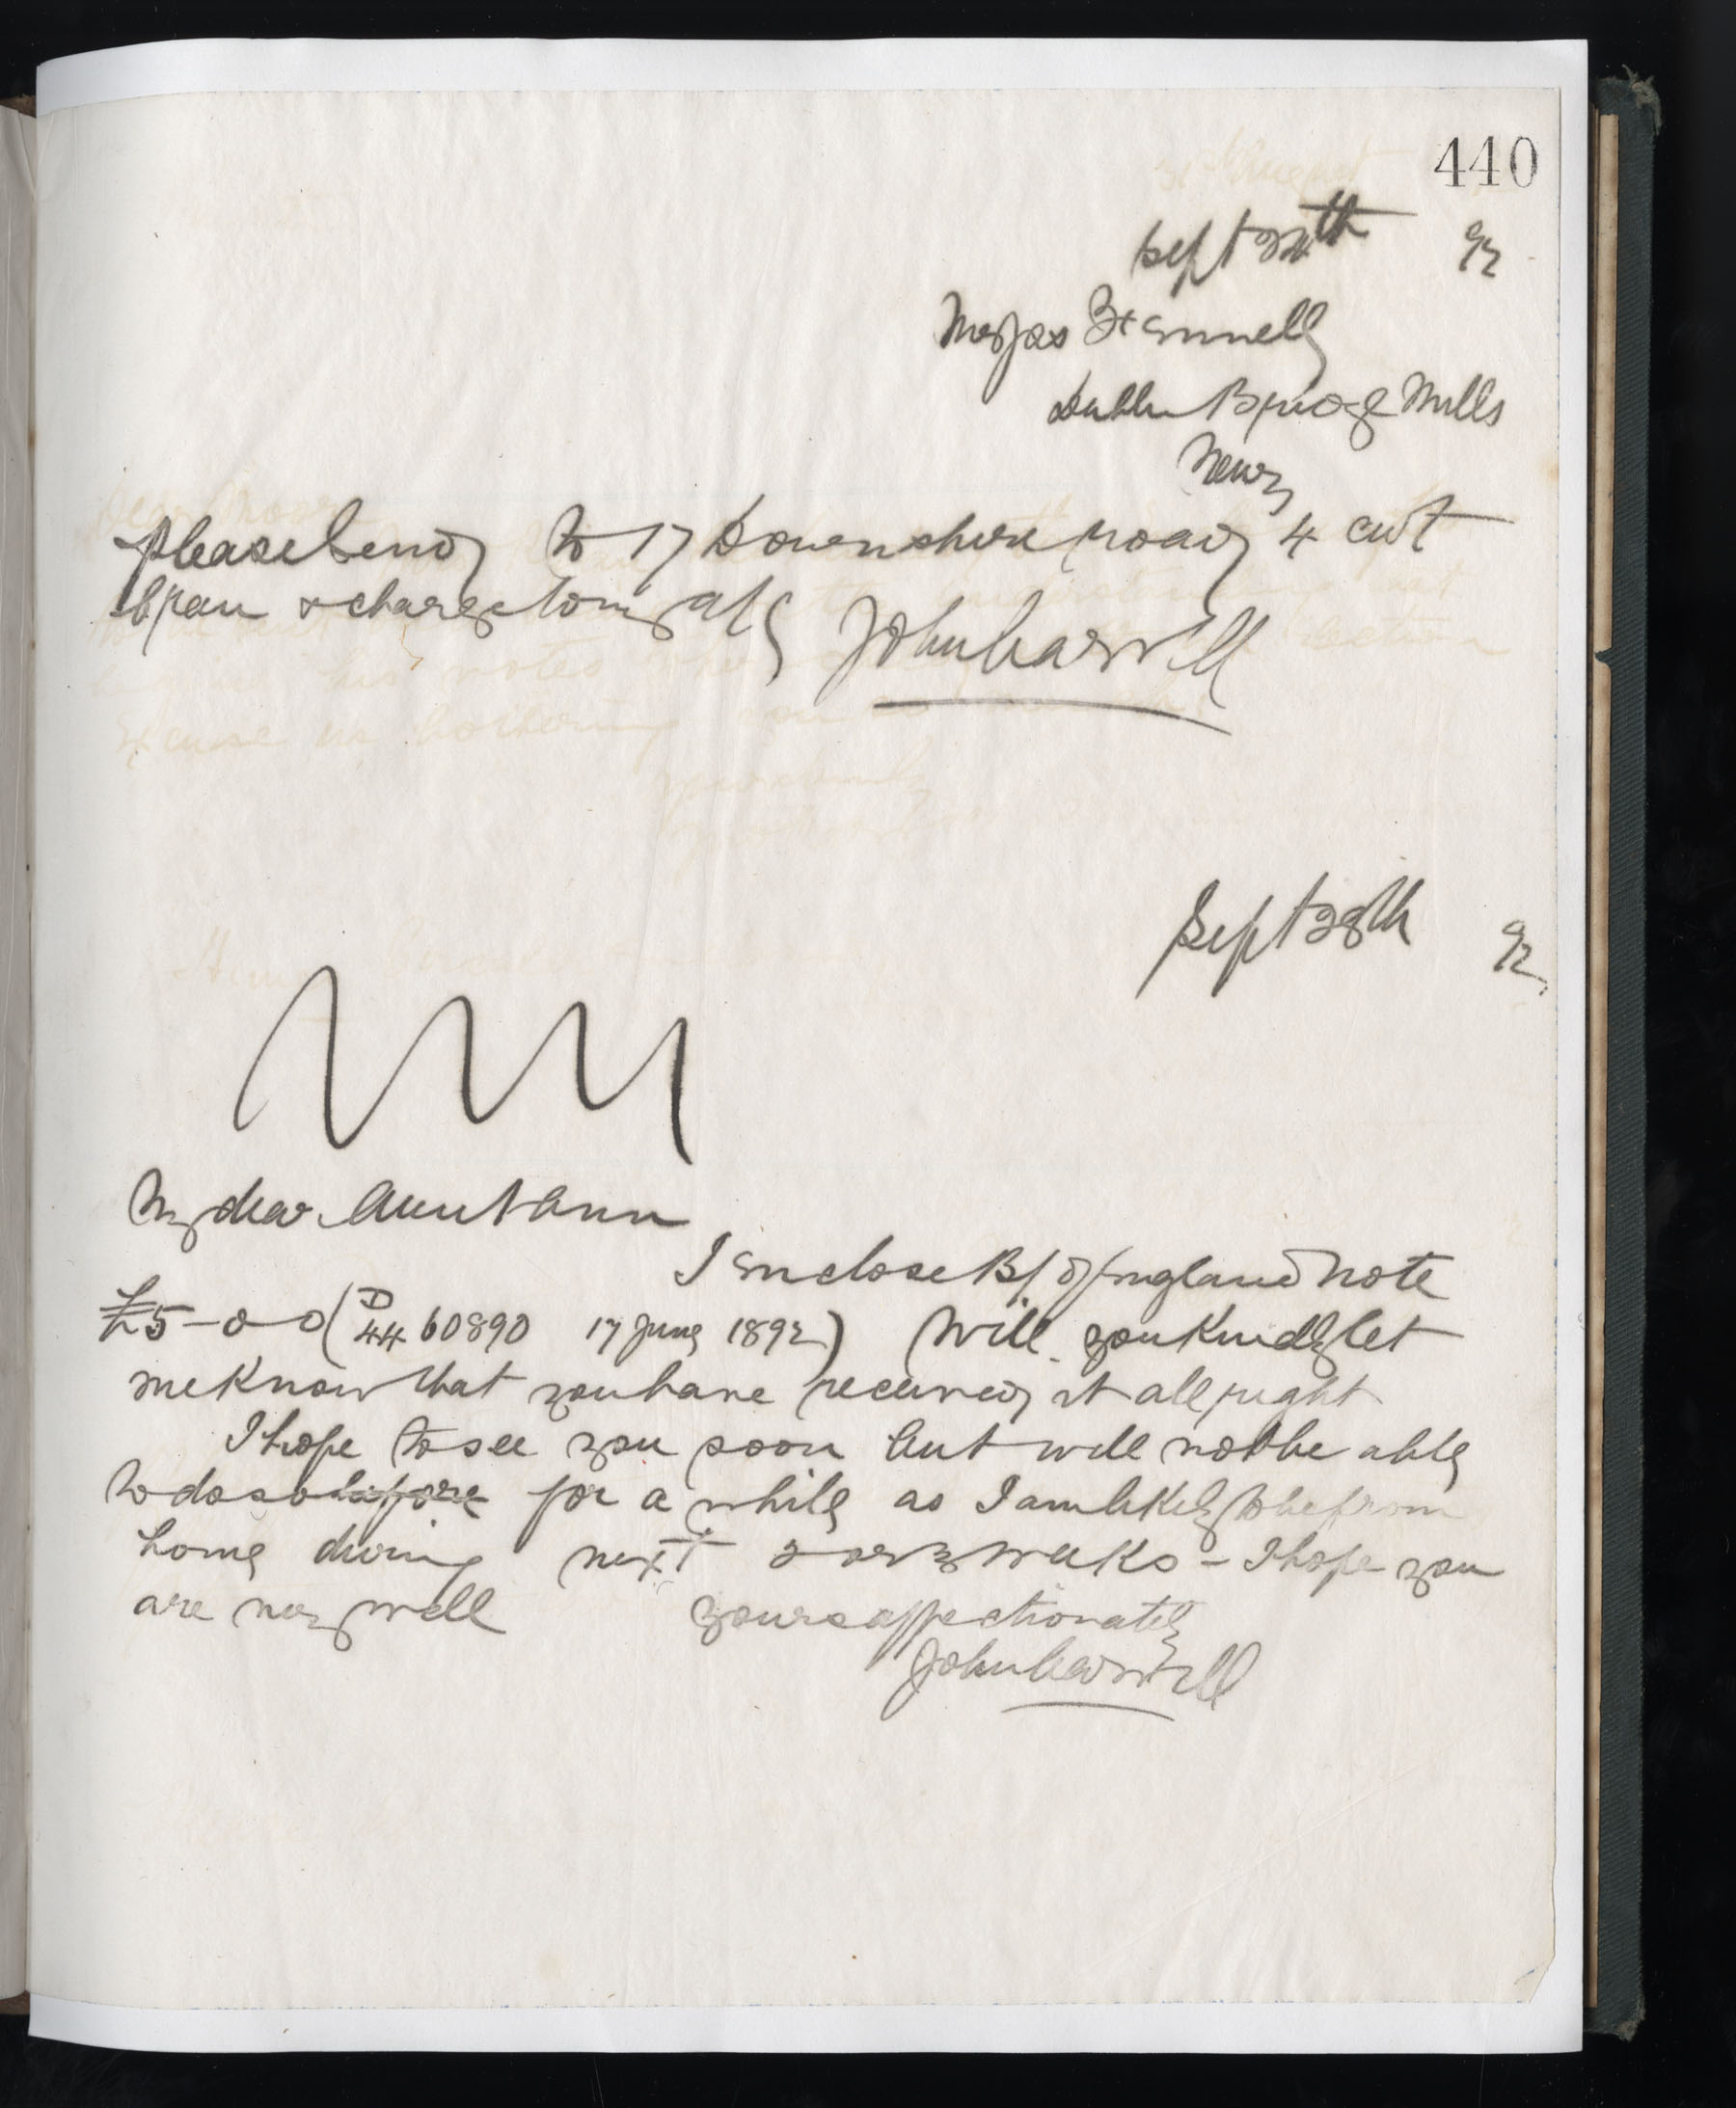 440
Sept 24th 92
Messrs Fennell
Dublin Bridge Mills
Newry
Please send to 17 Downshire road 4 cwt
bran & charge to my a/c John Carvill
Sept 28th 92
My dear Aunt Ann
I enclose B/ of England Note
£5-0-0 (D/44 60890 17 June 1892) Will you kindly let
me know that you have received it all right
I hope to see you soon but will not be able
to do so before for a while as I am likely to be from
home during next 2 or 3 weeks - I hope you
are very well yours affectionately
John Carvill